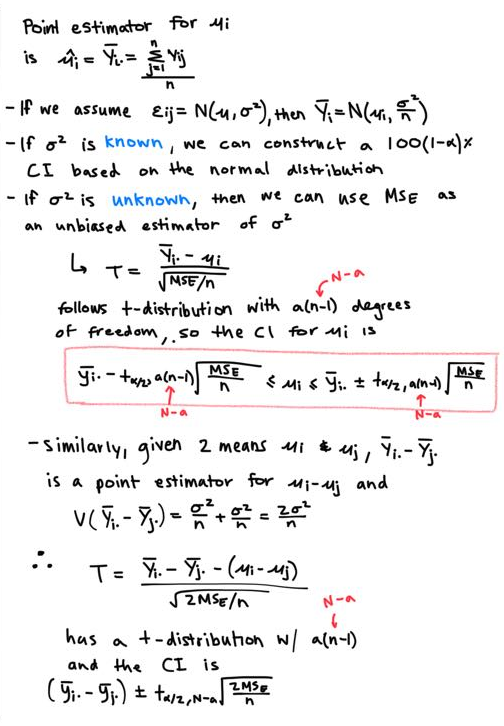 Point estimator for μi
is μ̂i = Ȳi. = Σⁿj=1 Yij / n
- If we assume εij = N(μ, σ²), then Ȳi = N(μi, σ²/n)
- If σ² is known, we can construct a 100(1-α)%
CI based on the normal distribution
- If σ² is unknown, then we can use MSE as
an unbiased estimator of σ²
↳ T = (Ȳi. - μi) / √(MSE/n)
N-a
follows t-distribution with a(n-1) degrees
of freedom, so the CI for μi is
ȳi. - tα/2, a(n-1) √(MSE/n) ≤ μi ≤ ȳi. ± tα/2, a(n-1) √(MSE/n)
N-a N-a
- Similarly, given 2 means μi & μj, Ȳi. - Ȳj.
is a point estimator for μi-μj and
V(Ȳi. - Ȳj.) = σ²/n + σ²/n = 2σ²/n
∴ T = (Ȳi. - Ȳj. - (μi-μj)) / √(2MSE/n)
N-a
has a t-distribution w/ a(n-1)
and the CI is
(ȳi. - ȳj.) ± tα/2, N-a √(2MSE/n)